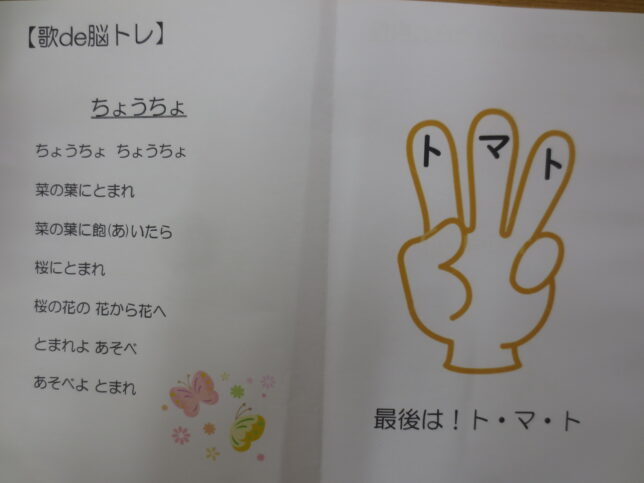 【歌de脳トレ】
ちょうちょ
ちょうちょ ちょうちょ
菜の葉にとまれ
菜の葉に飽(あ)いたら
桜にとまれ
桜の花の 花から花へ
とまれよ あそべ
あそべよ とまれ
ト マ ト
最後は！ト・マ・ト